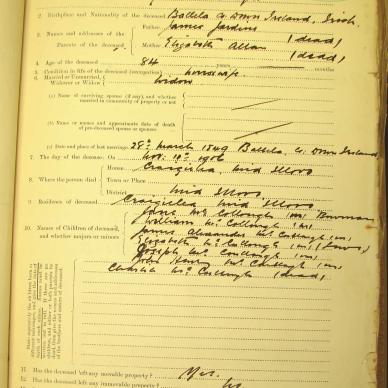 2. Birthplace and Nationality of the deceased Ballela, Co Down Ireland, Irish
3. Names and addresses of the Parents of the deceased
Father James Jardine (dead)
Mother Elizabeth Allan (dead)
4. Age of the deceased 84 years months
5. Condition in life of the deceased (occupation) housewife
6. Married or Unmarried, Widower or Widow widow
(a) Name of surviving spouse (if any), and whether married in community of property or not
(b) Name or names and approximate date of death of pre-deceased spouse or spouses
(c) Date and place of last marriage 28th March 1849 Ballela, Co Down Ireland
7. The day of the decease: On Nov. 10th 1906
8. Where the person died
House Craigielea, Mid Illovo
Town or Place
District Mid Illovo
9. Residence of deceased Craigielea Mid Illovo
10. Names of Children of deceased, and whether majors or minors
Jane Mc Collough (m)
William Mc Collough (m)
James Alexander Mc Collough (m)
Elizabeth Mc Collough (m)
Joseph Mc Collough (m)
John Henry Mc Collough (m)
Charles Mc Collough (dead)
11. Has the deceased left any movable property? Yes.
12. Has the deceased left any immovable property?